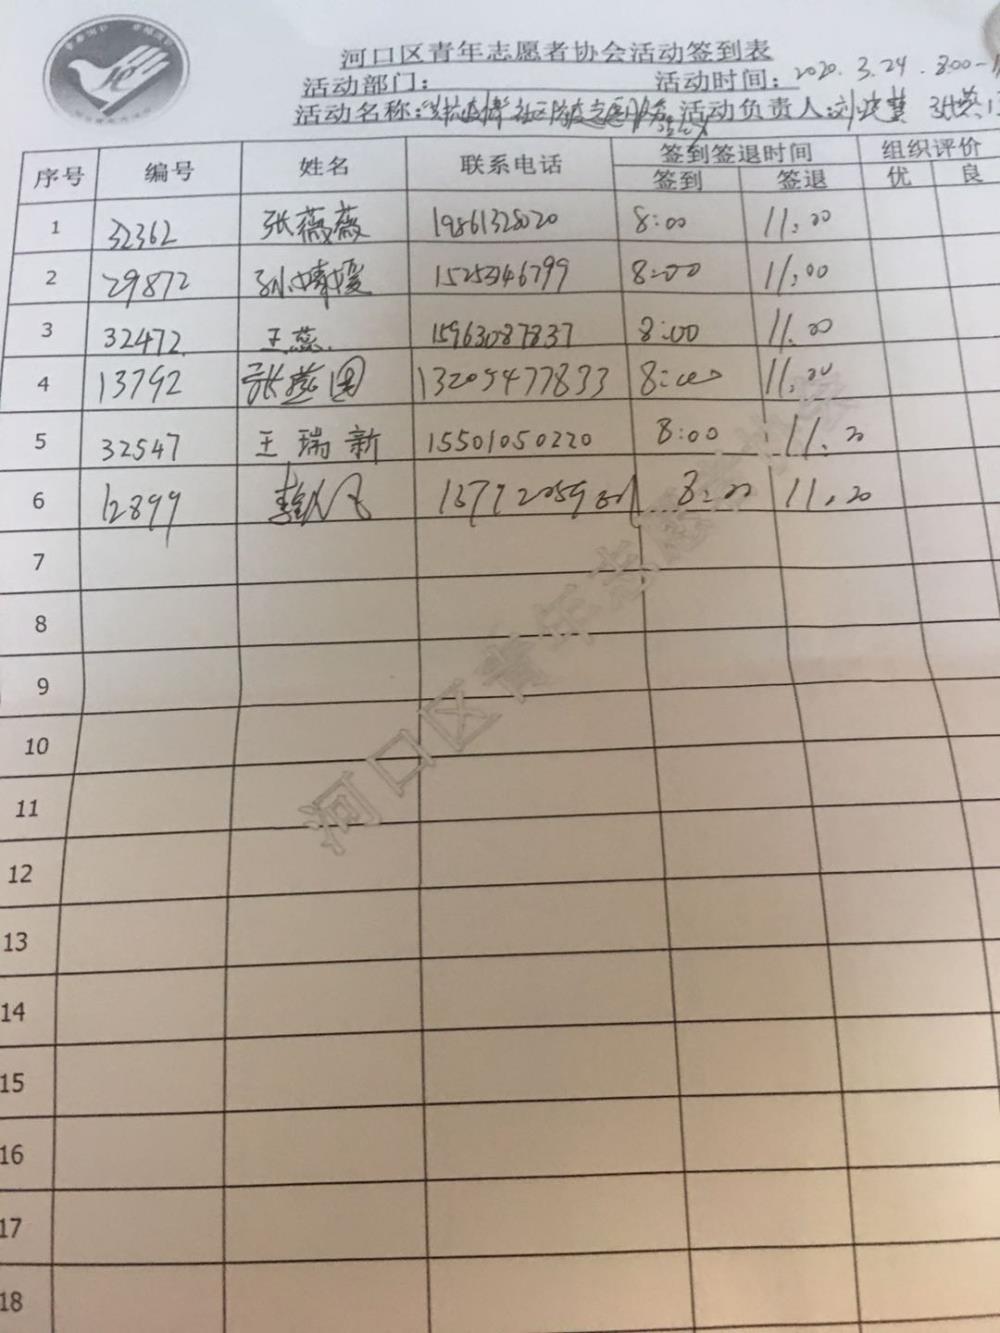 河口区青年志愿者协会活动签到表
活动部门： 活动时间：2020.3.24.8:00-
活动名称： 活动负责人：
序号 编号 姓名 联系电话 签到签退时间 组织评价
签到 签退 优 良
1 32362 张薇薇 19861328020 8:00 11:00
2 29872 孙婧媛 15253446799 8:00 11:00
3 32472 王蕊 15963087837 8:00 11:00
4 13792 13205477833 8:00 11:00
5 32547 王瑞新 15501050220 8:00 11:20
6 12899 8:00 11.20
7
8
9
10
11
12
13
14
15
16
17
18
河口区青年志愿者协会